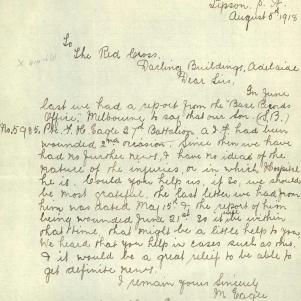 Lipson, S. A.
August 5th 1918
To
The Red Cross,
Darling Buildings, Adelaide
Dear Sirs,
In June
last we had a report from the Base Records
Office, Melbourne to say that our Son (S.B.)
No. 5985, Pte F. H. Eagle 27th Battalion A.I.F had been
wounded 2nd occasion. Since then we have
had no further news, & have no idea of the
nature of the injuries, or in which Hospital
he is. Could you help us, if so, we should
be most grateful. The last letter we had from
him was dated May 15th & the report of him
being wounded June 21st so it is within
that time, that might be a little help to you.
We heard that you help in cases such as this.
& it would be a great relief to be able to
get definite news.
I remain Yours Sincerely
M Eagle